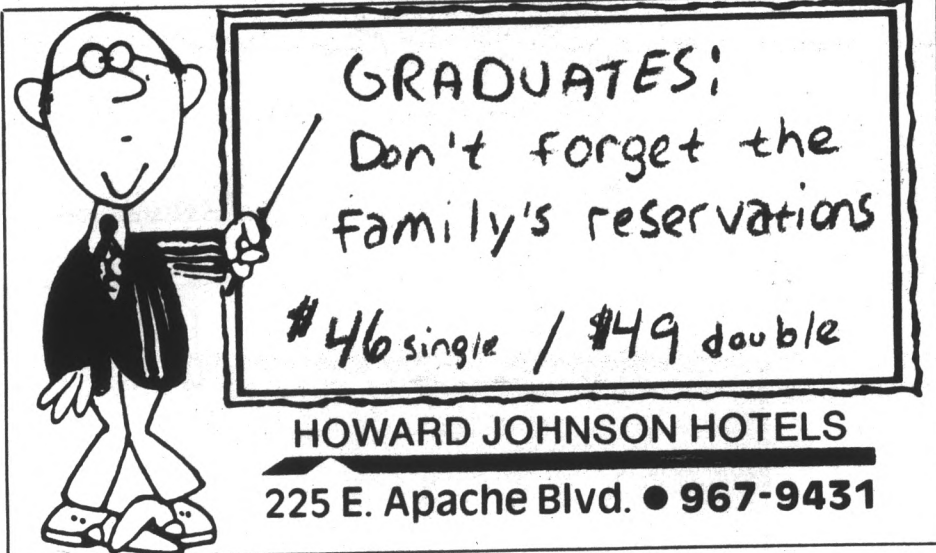 GRADUATES:
Don't forget the
family's reservations
$46 single / $49 double
HOWARD JOHNSON HOTELS
225 E. Apache Blvd. ● 967-9431